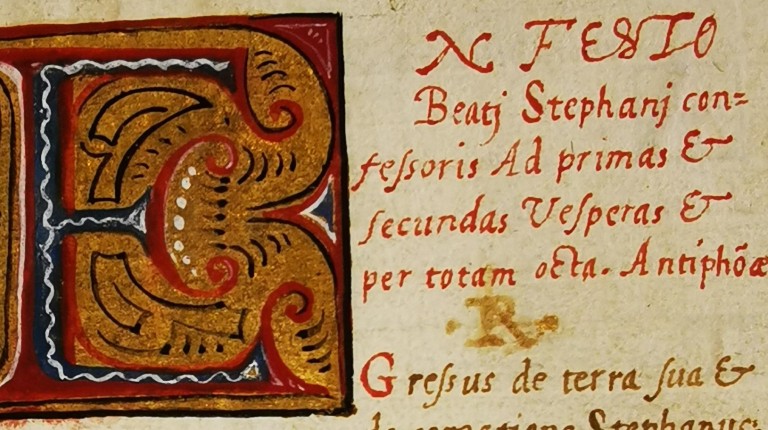 N FESTO
Beatj Stephanj con=
fessoris Ad primas &
secundas Vesperas &
per totam octa. Antiphõæ
.R.
Gressus de terra sua &
Stephanus: